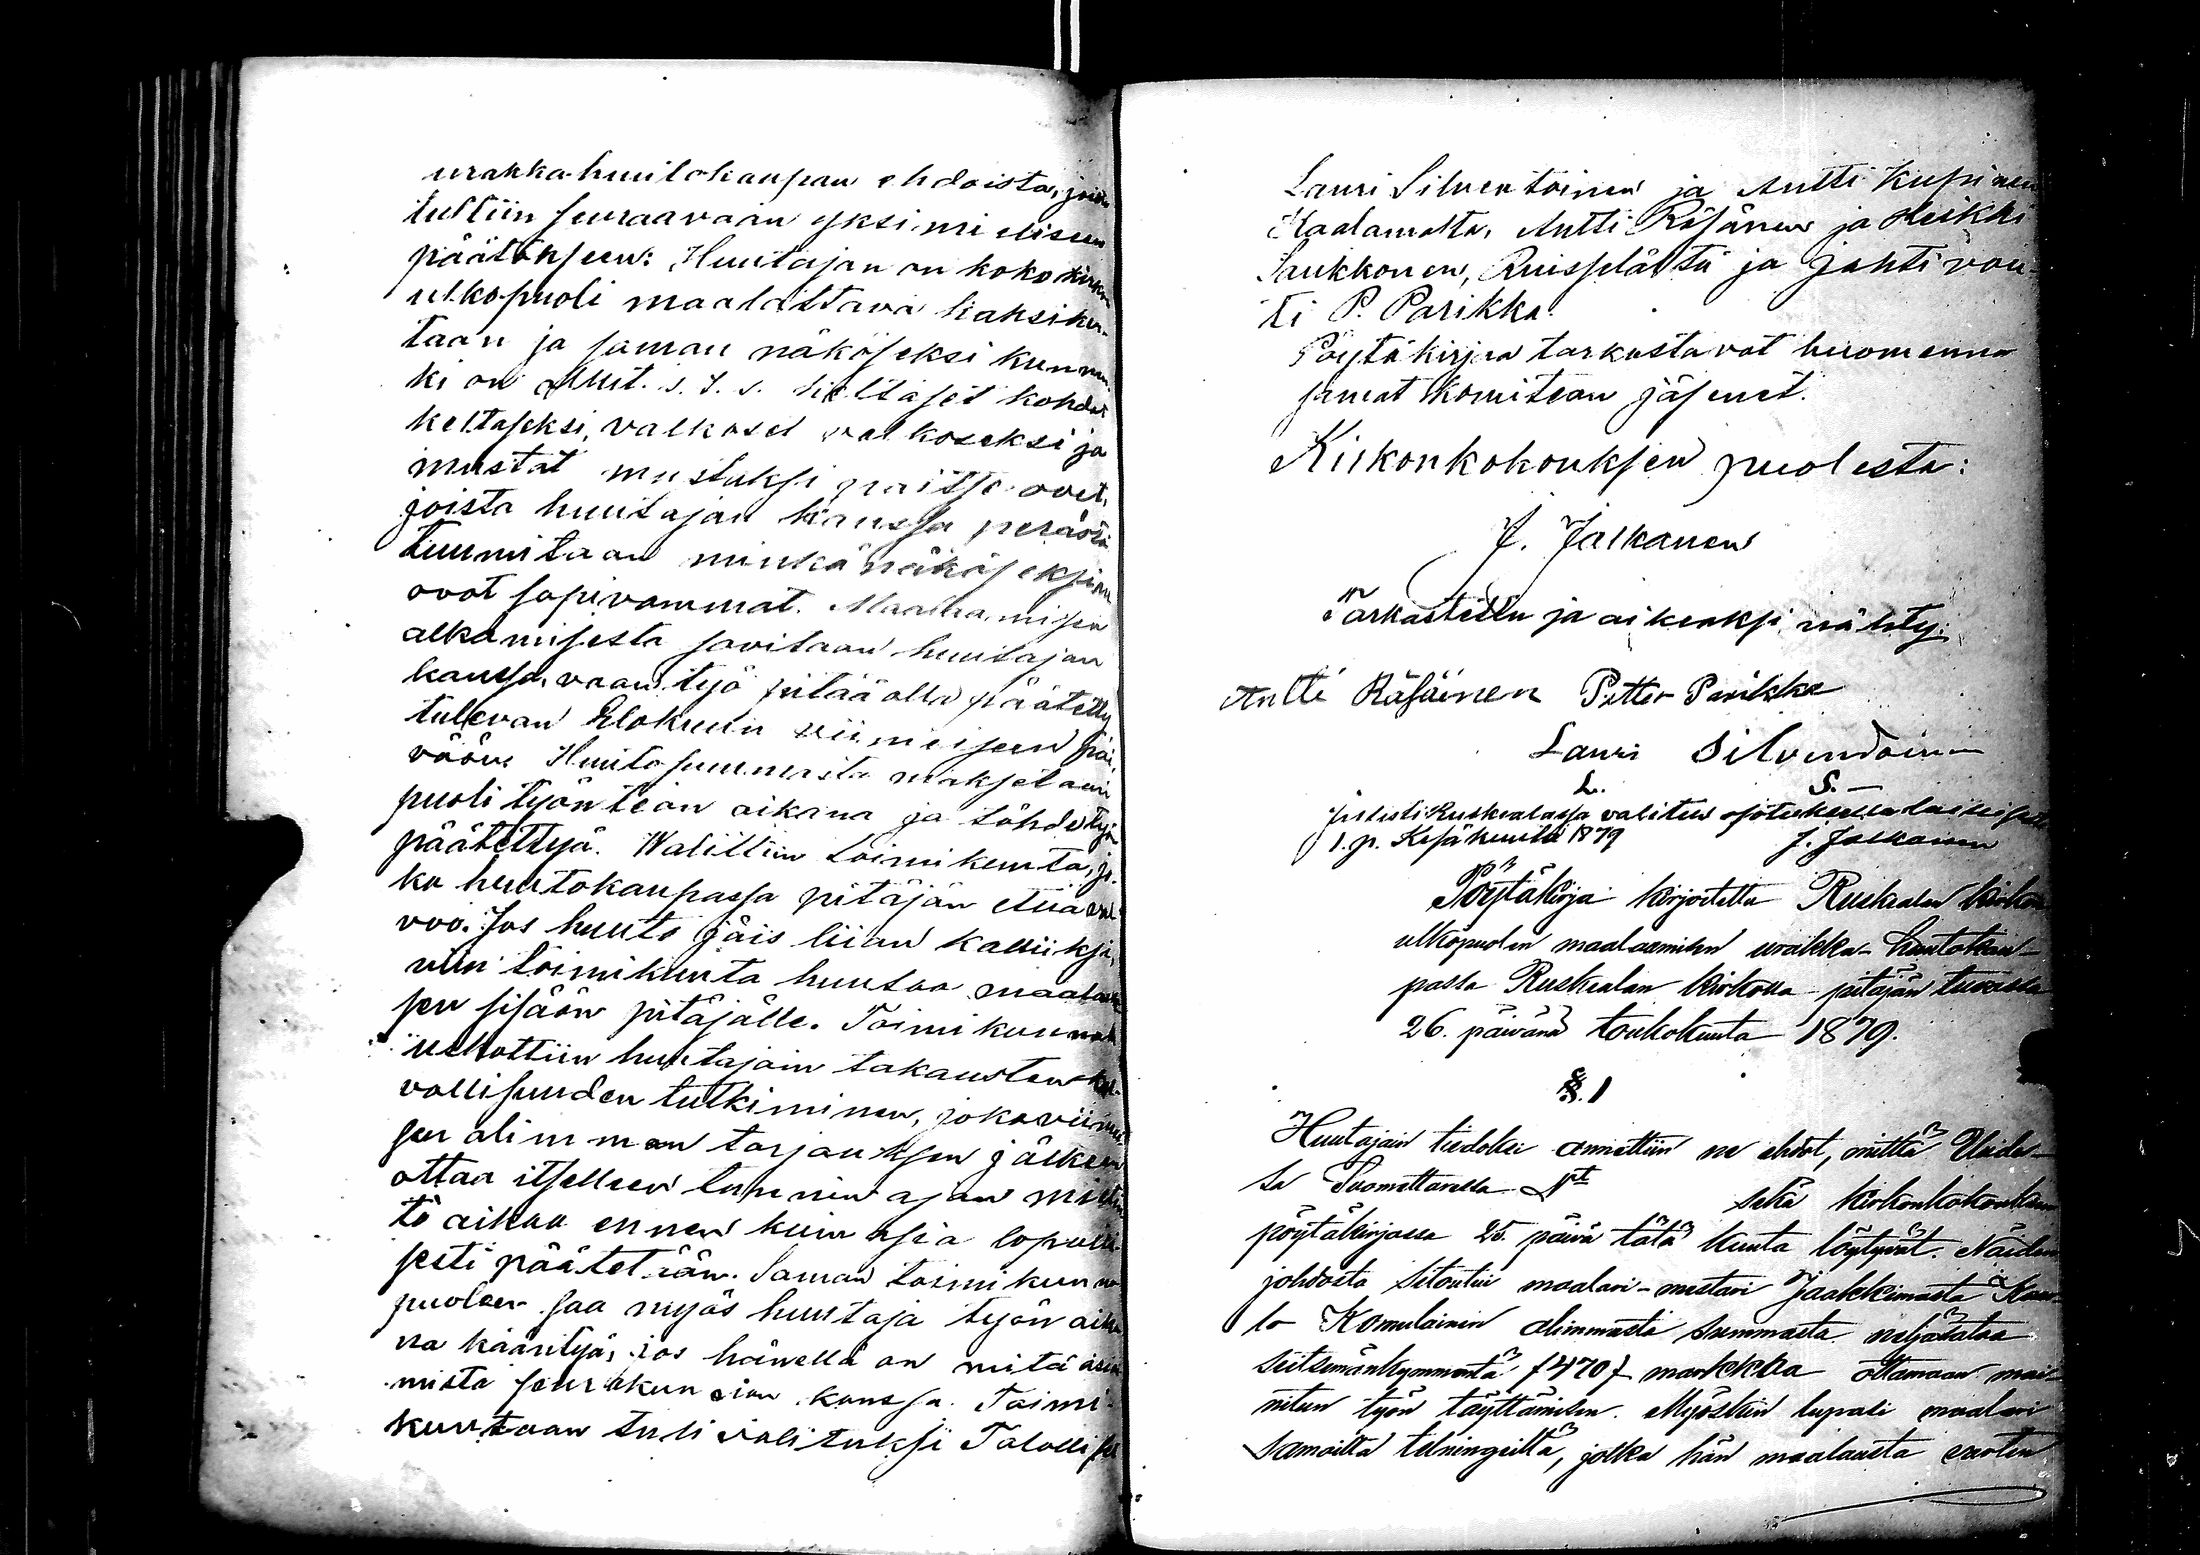 urakka-huutokaupan ehdoista, joista
tultiin seuraavaan yksimieliseen
päätökseen: Huutajan on koko kirkon
ulkopuoli maalattava kaksiker-
taan ja saman näköseksi kun nyt-
ki on nimit. s. t. s. keltaset kohdat
keltaseksi, valkoset valkoseksi ja
mustat mustaksi paitse ovet,
joista huutajan kanssa perästä
tuumitaan minkä näköseksi ne
ovat sopivammat. Maalaamisen
alkamisesta sovitaan huutajan
kanssa, vaan työ pitää olla päätetty
tulevan Elokuun viimeiseen päi-
vään. Huutosummasta maksetaan
puoli työn teon aikana ja tähde työn
päätettyä. Walittiin toimikunta, jo-
ka huutokaupassa pitäjän etua val-
voo. Jos huuto jäis liian kalliiksi,
niin toimikunta huutaa maalauk-
sen sisään pitäjälle. Toimikunnalle
uskottiin huutajain takausten kel-
vollisuuden tutkiminen, joka viimei-
sen alimman tarjouksen jälkeen
ottaa itselleen tunnin ajan mietin-
tö aikaa ennen kuin asia lopulli-
sesti päätetään. Saman toimikunnan
puoleen saa myös huutaja työn aika-
na kääntyä, jos hänellä on mitä asia-
mista seurakunnan kanssa. Toimi-
kuntaan tuli valituksi Talolliset
Lauri Silventoinen ja Antti Kupinen
Kaalamolta, Antti Räsänen ja Heikki
Saukkonen, Ruisselältä ja Jahtivou-
ti P. Parikka.
Pöytäkirjaa tarkastavat huomenna
samat komitean jäsenet.
Kirkonkokouksen puolesta:
J. Jalkanen
Tarkastettu ja oikeaksi nähty:
Antti Räsäinen Petter Parikka
Lauri Silvendoinen
L. S.
Julisti Ruskealassa valitus osotuksella
1. p. Kesäkuuta 1879 J. Jalkanen
Pöytäkirja kirjoitettu Ruskealan kirkon
ulkopuolen maalaamisen urakka-huutokau-
passa Ruskealan kirkolla pitäjän tuvassa
26. päivänä toukokuuta 1879.
§. 1
Huutajain tiedoksi annettiin ne ehdot, mitkä Uude-
sa Suomettaressa No sekä kirkonkokouksen
pöytäkirjassa 25. päivä tätä kuuta löytyvät. Näiden
johdosta sitoutui maalari-mestari Jaakkimasta
lo Komulainen alimmasta summasta neljäsataa
seitsemänkymmentä (470) markkaa ottamaan mai-
nitun työn täyttämisen. Myöskin lupasi maalari
samoilla telningeillä, jolka hän maalausta varten